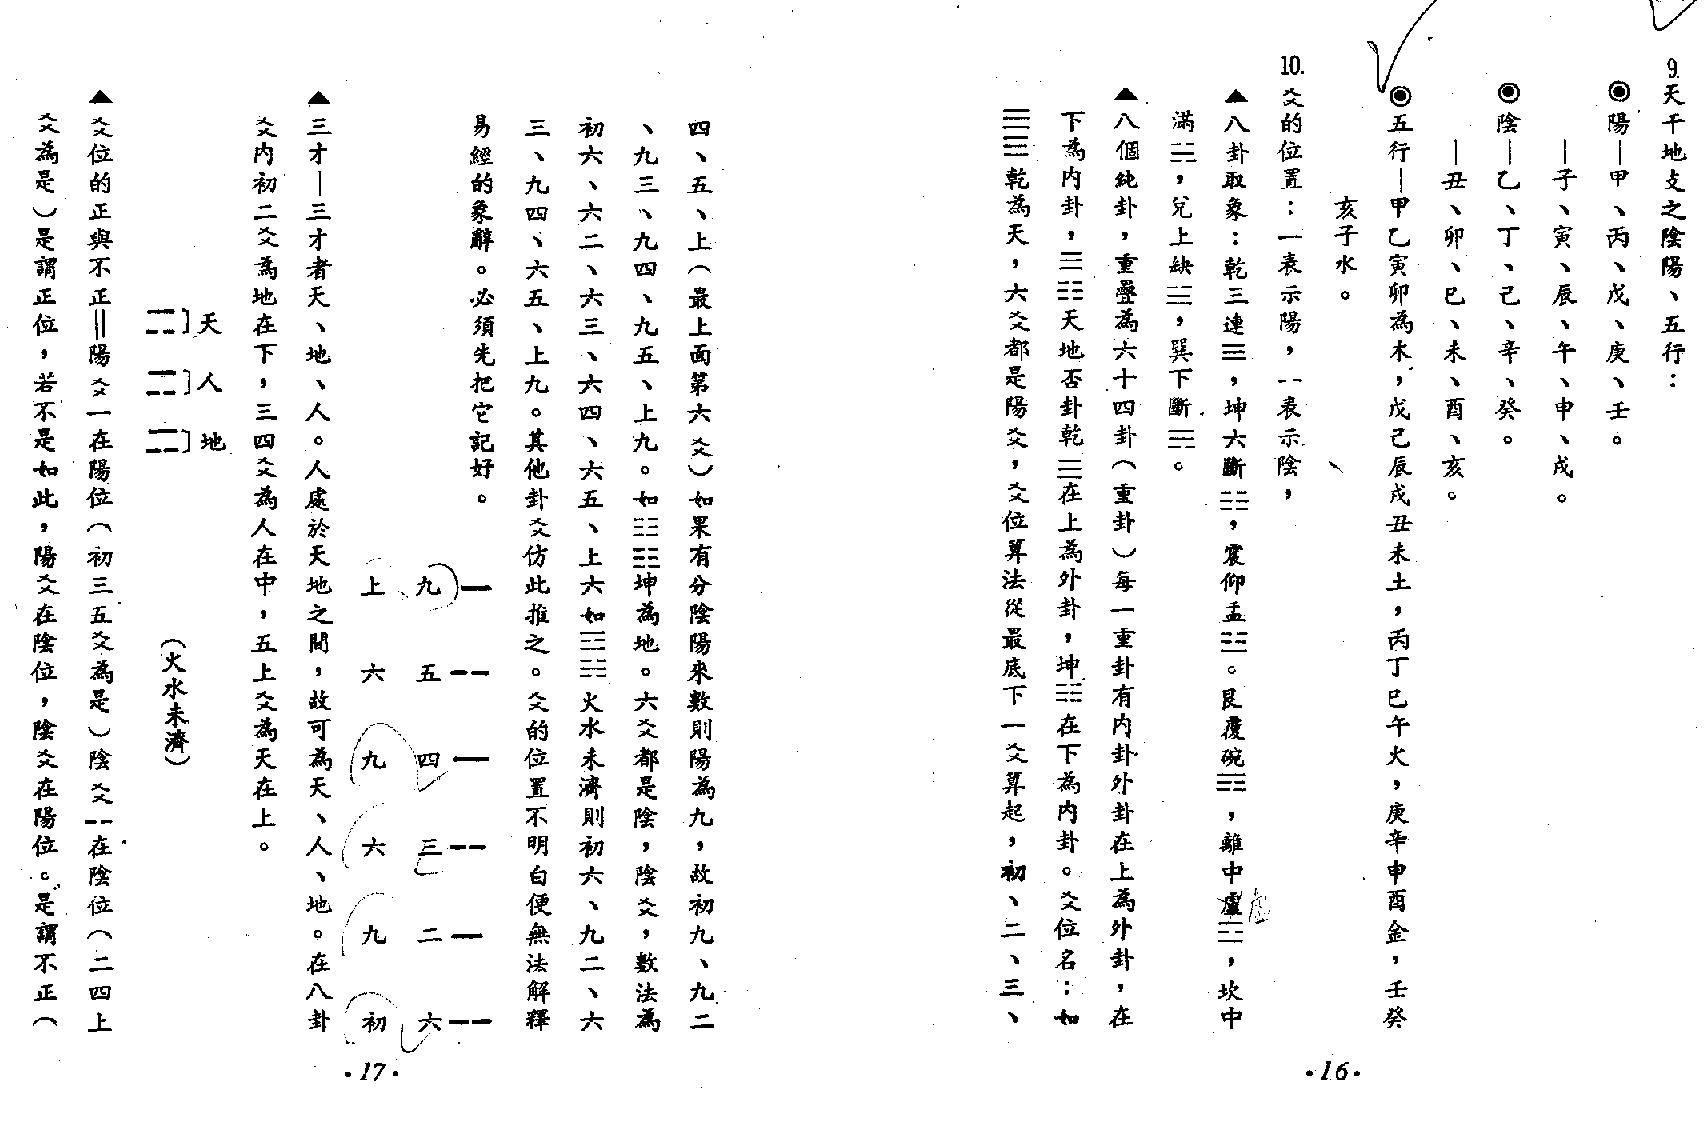 9.天干地支之陰陽、五行：
◉陽—甲、丙、戊、庚、壬。
—子、寅、辰、午、申、戌。
◉陰—乙、丁、己、辛、癸。
—丑、卯、巳、未、酉、亥。
◉五行—甲乙寅卯為木，戊己辰戌丑未土，丙丁巳午火，庚辛申酉金，壬癸
亥子水。
10.爻的位置：一表示陽，--表示陰，
▲八卦取象：乾三連☰，坤六斷☷，震仰盂☳。艮覆碗☶，離中虛☲，坎中
滿☵，兌上缺☱，巽下斷☴。
▲八個純卦，重疊為六十四卦（重卦）每一重卦有內卦外卦在上為外卦，在
下為內卦，☰☷天地否卦乾☰在上為外卦，坤☷在下為內卦。爻位名：如
☰☰乾為天，六爻都是陽爻，爻位算法從最底下一爻算起，初、二、三、
·16·
四、五、上（最上面第六爻）如果有分陰陽來數則陽為九，故初九、九二
、九三、九四、九五、上九。如☷☷坤為地。六爻都是陰，陰爻，數法為
初六、六二、六三、六四、六五、上六如☲☵火水未濟則初六、九二、六
三、九四、六五、上九。其他卦爻仿此推之。爻的位置不明白便無法解釋
易經的象辭。必須先把它記好。
九 五 四 三 二 六
上 六 九 六 九 初
▲三才—三才者天、地、人。人處於天地之間，故可為天、人、地。在八卦
爻內初二爻為地在下，三四爻為人在中，五上爻為天在上。
天 人 地
（火水未濟）
▲爻位的正與不正＝陽爻一在陽位（初三五爻為是）陰爻--在陰位（二四上
爻為是）是謂正位，若不是如此，陽爻在陰位，陰爻在陽位。是謂不正（
·17·